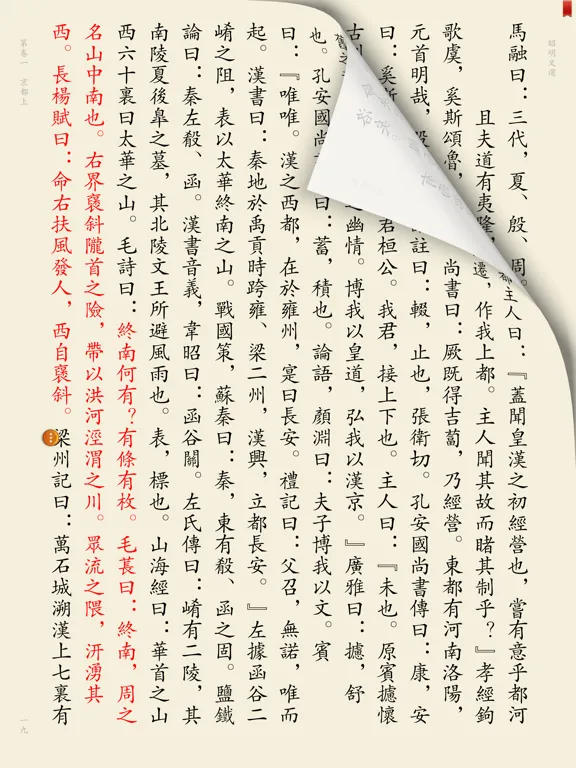 昭明文選
馬融曰：三代，夏、殷、周。
主人曰：『蓋聞皇漢之初經營也，嘗有意乎都河
且夫道有夷隆，
遷，作我上都。主人聞其故而睹其制乎？』孝經鉤
歌虞，奚斯頌魯，
尚書曰：厥既得吉蔔，乃經營。東都有河南洛陽，
元首明哉，
註曰：輟，止也，張衛切。孔安國尚書傳曰：康，安
曰：奚斯
君桓公。我君，接上下也。主人曰：『未也。原賓攄懷
古
之幽情。博我以皇道，弘我以漢京。』廣雅曰：攄，舒
也。孔安國尚
曰：蓄，積也。論語，顏淵曰：夫子博我以文。賓
曰：『唯唯。漢之西都，在於雍州，寔曰長安。禮記曰：父召，無諾，唯而
起。漢書曰：秦地於禹貢時跨雍、梁二州，漢興，立都長安。』左據函谷二
崤之阻，表以太華終南之山。戰國策，蘇秦曰：秦，東有殽、函之固。鹽鐵
論曰：秦左殽、函。漢書音義，韋昭曰：函谷關。左氏傳曰：崤有二陵，其
南陵夏後皋之墓，其北陵文王所避風雨也。表，標也。山海經曰：華首之山
西六十裏曰太華之山。毛詩曰：終南何有？有條有枚。毛萇曰：終南，周之
名山中南也。右界褒斜隴首之險，帶以洪河涇渭之川。眾流之隈，汧湧其
西。長楊賦曰：命右扶風發人，西自褒斜。梁州記曰：萬石城溯漢上七裏有
第卷一 京都上
一九